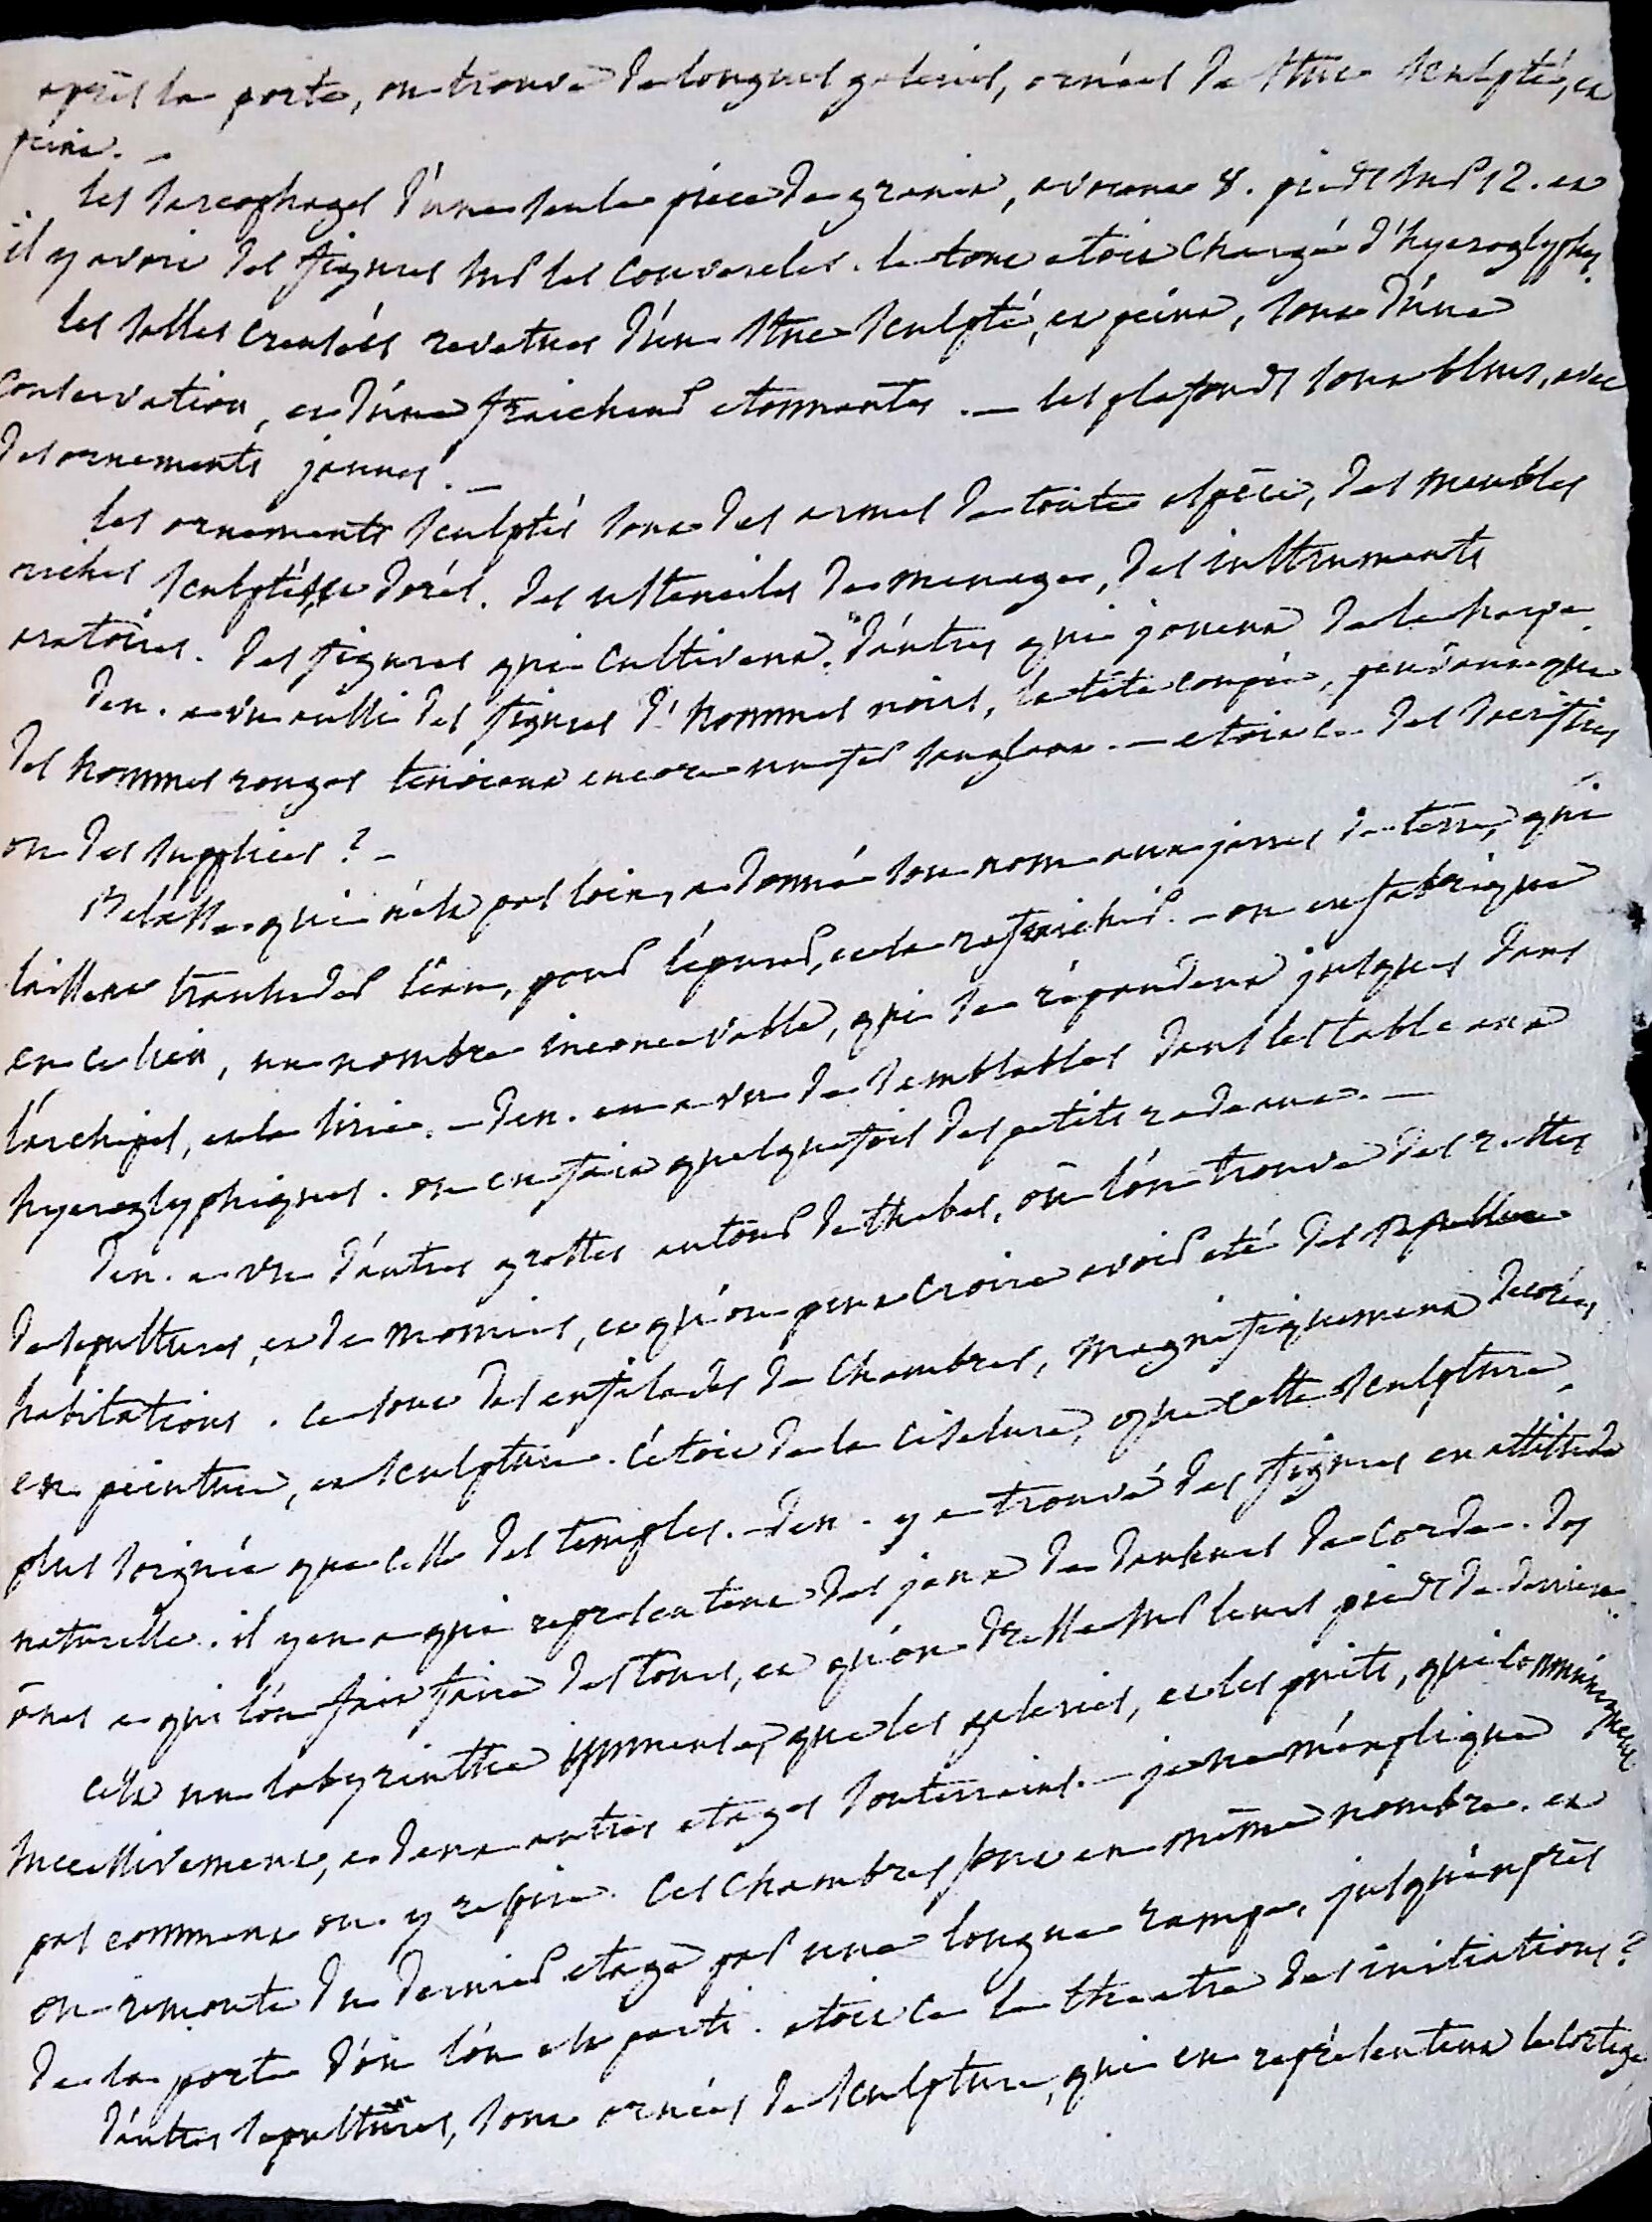 après la porte, on trouve de longues galeries, ornées de stuc sculpté, et
peint. —
les sarcophages d'une seule piece de granit, avoient 8. pieds sur 12. et
il y avoit des figures sur les couvercles. le tout etoit chargé d'hyeroglyphes.
les salles creusées revetues d'un stuc sculpté, et peint, sont d'une
conservation, et d'une fraicheur etonnantes. — les plafonds sont bleus, avec
des ornements jaunes. —
les ornements sculptés sont des armes de toute espèce, des meubles
riches sculptés et dorés. des ustenciles de menage, des instruments
aratoires. des figures qui cultivent. d'autres qui jouent de la harpe.
Den. a vu aussi des figures d'hommes noirs, la tête coupée, pendant que
des hommes rouges tenoient encore un fer sanglant. — etoit ce des sacrifices
ou des supplices ? —
Belasse qui n'est pas loin, a donné son nom aux jarres de terre, qui
laissent transuder l'eau, pour l'épurer, et la rafraichir. — on en fabrique
en ce lieu, un nombre inconcevable, qui se répandent jusques dans
l'archipel, et la sirie. — Den. en a vu de semblables dans les tableaux
hyeroglyphiques. on en fait quelquefois des petits radeaux. —
Den. a vu d'autres grottes autour de thebes, où l'on trouve des restes
de sepultures, et de momies, et qu'on peut croire avoir eté des
habitations. ce sont des enfilades de chambres, magnifiquement decorées
en peinture, et sculpture. c'etoit de la ciselure, que cette sculpture,
plus soignée que celle des temples. — Den. y a trouvé des figures en attitude
naturelle. il y en a qui representent des jeux de danseurs de corde. des
ânes a qui l'on fait faire des tours, et qu'on dresse sur leurs pieds de derriere.
c'est un labyrinthe immense, que les galeries, et les puits, qui communiquent
successivement, a deux autres etages souterrains. — je ne m'explique
pas comment on y respire. ces chambres sont en même nombre. et
on remonte du dernier etage par une longue rampe, jusqu'auprès
de la porte d'où l'on est parti. etoit ce le theatre des initiations ?
d'autres sepultures, sont ornées de sculpture, qui en représentent le cortege